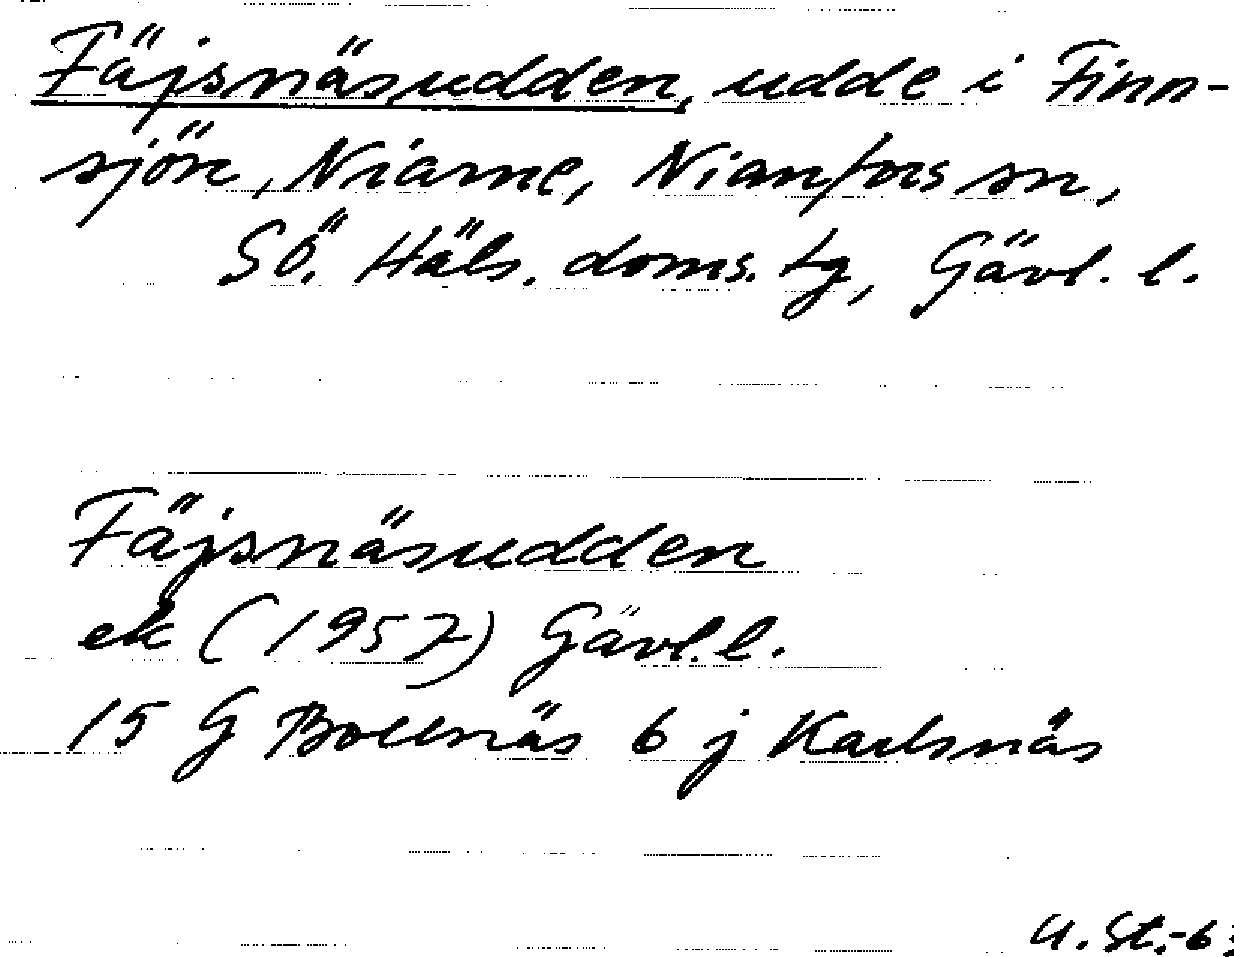 Fäjsnäsudden, udde i Finn-
sjön, Niarne, Nianfors sn,
SÖ. Häls. doms. tg, Gävl. l.
Fäjsnäsudden
ek (1957) Gävl. l.
15 G Bollnäs 6 j Karlsnäs
U. St.-63